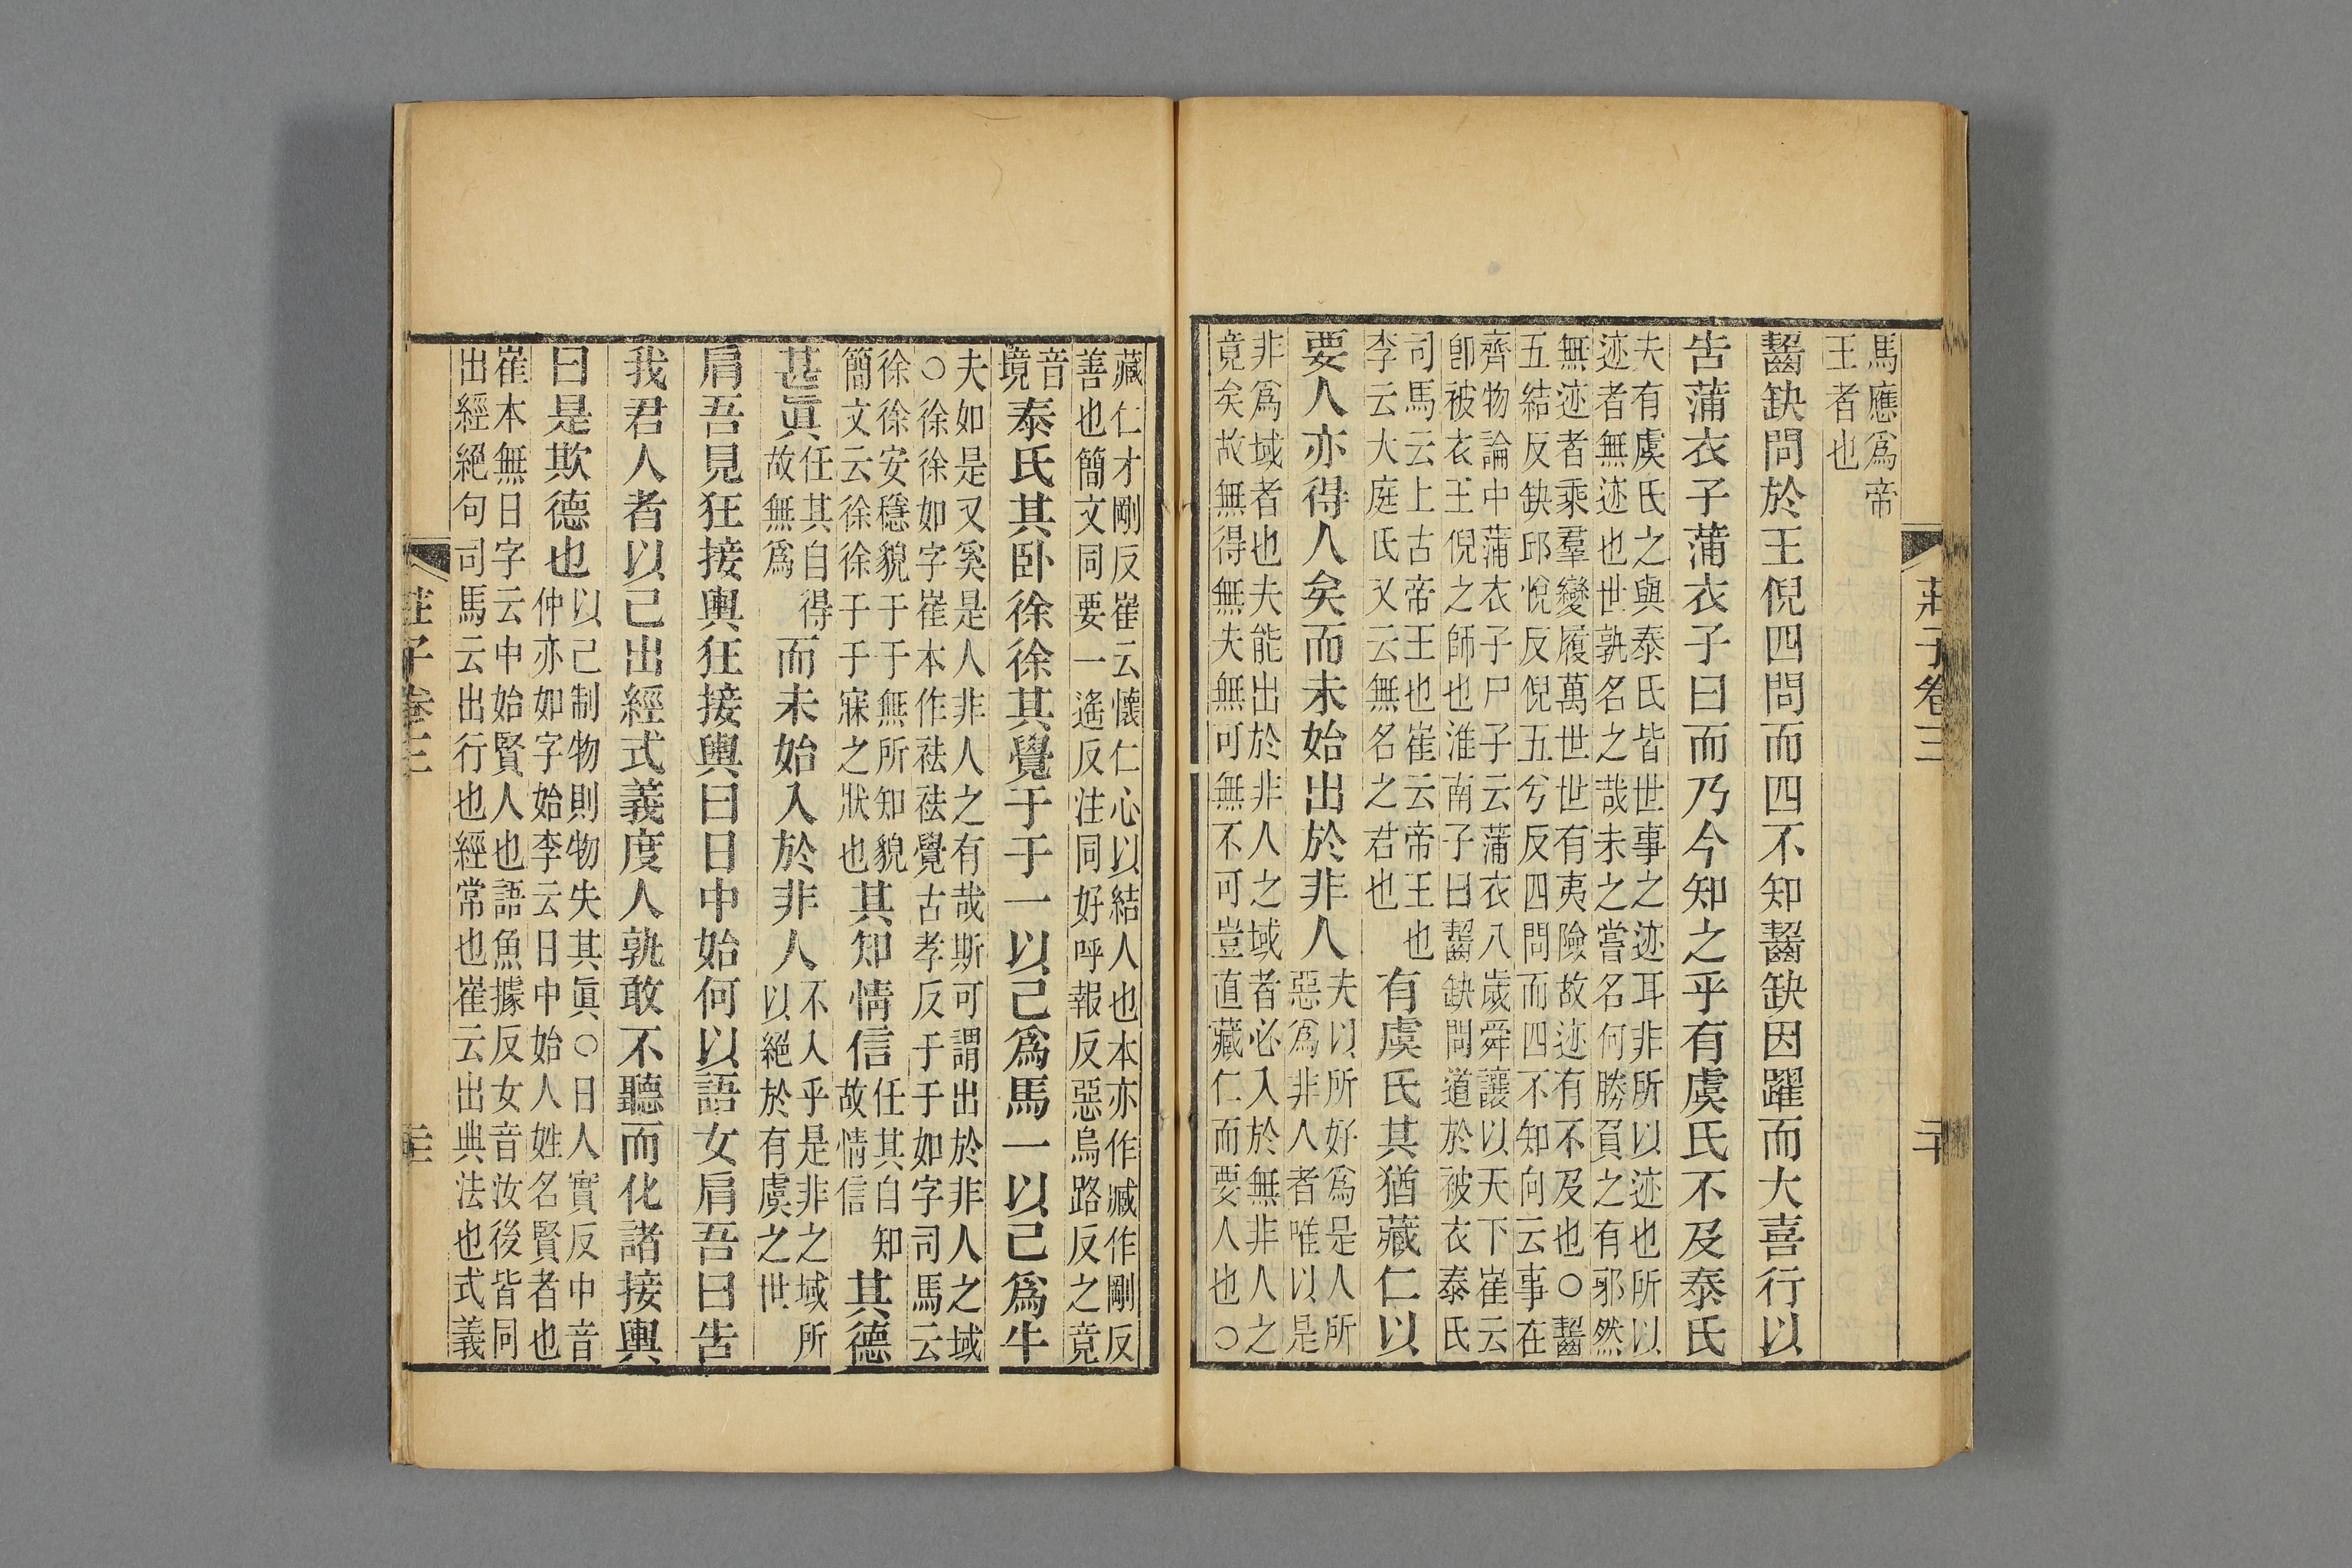 莊子卷三
二十
馬應爲帝
王者也
齧缺問於王倪四問而四不知齧缺因躍而大喜行以
告蒲衣子蒲衣子曰而乃今知之乎有虞氏不及泰氏
夫有虞氏之與泰氏皆世事之迹耳非所以迹也所以
迹者無迹也世孰名之哉未之嘗名何勝負之有邪然
無迹者乘羣變履萬世世有夷險故迹有不及也○齧
五結反缺邱悅反倪五兮反四問而四不知向云事在
齊物論中蒲衣子尸子云蒲衣八歲舜讓以天下崔云
卽被衣王倪之師也淮南子曰齧缺問道於被衣泰氏
司馬云上古帝王也崔云帝王也
李云大庭氏又云無名之君也
有虞氏其猶藏仁以
要人亦得人矣而未始出於非人
夫以所好爲是人所
惡爲非人者唯以是
非爲域者也夫能出於非人之域者必入於無非人之
竟矣故無得無失無可無不可豈直藏仁而要人也○
藏仁才剛反崔云懷仁心以結人也本亦作臧作剛反
善也簡文同要一遙反注同好呼報反惡烏路反之竟
音
境
泰氏其卧徐徐其覺于于一以己爲馬一以己爲牛
夫如是又奚是人非人之有哉斯可謂出於非人之域
○徐徐如字崔本作祛祛覺古孝反于于如字司馬云
徐徐安穩貌于于無所知貌
簡文云徐徐于于寐之狀也
其知情信
任其自知
故情信
其德
甚眞
任其自得
故無爲
而未始入於非人
不入乎是非之域所
以絕於有虞之世
肩吾見狂接輿狂接輿曰日中始何以語女肩吾曰告
我君人者以己出經式義度人孰敢不聽而化諸接輿
曰是欺德也
以己制物則物失其眞○日人實反中音
仲亦如字始李云日中始人姓名賢者也
崔本無日字云中始賢人也語魚據反女音汝後皆同
出經絕句司馬云出行也經常也崔云出典法也式義
莊子卷三